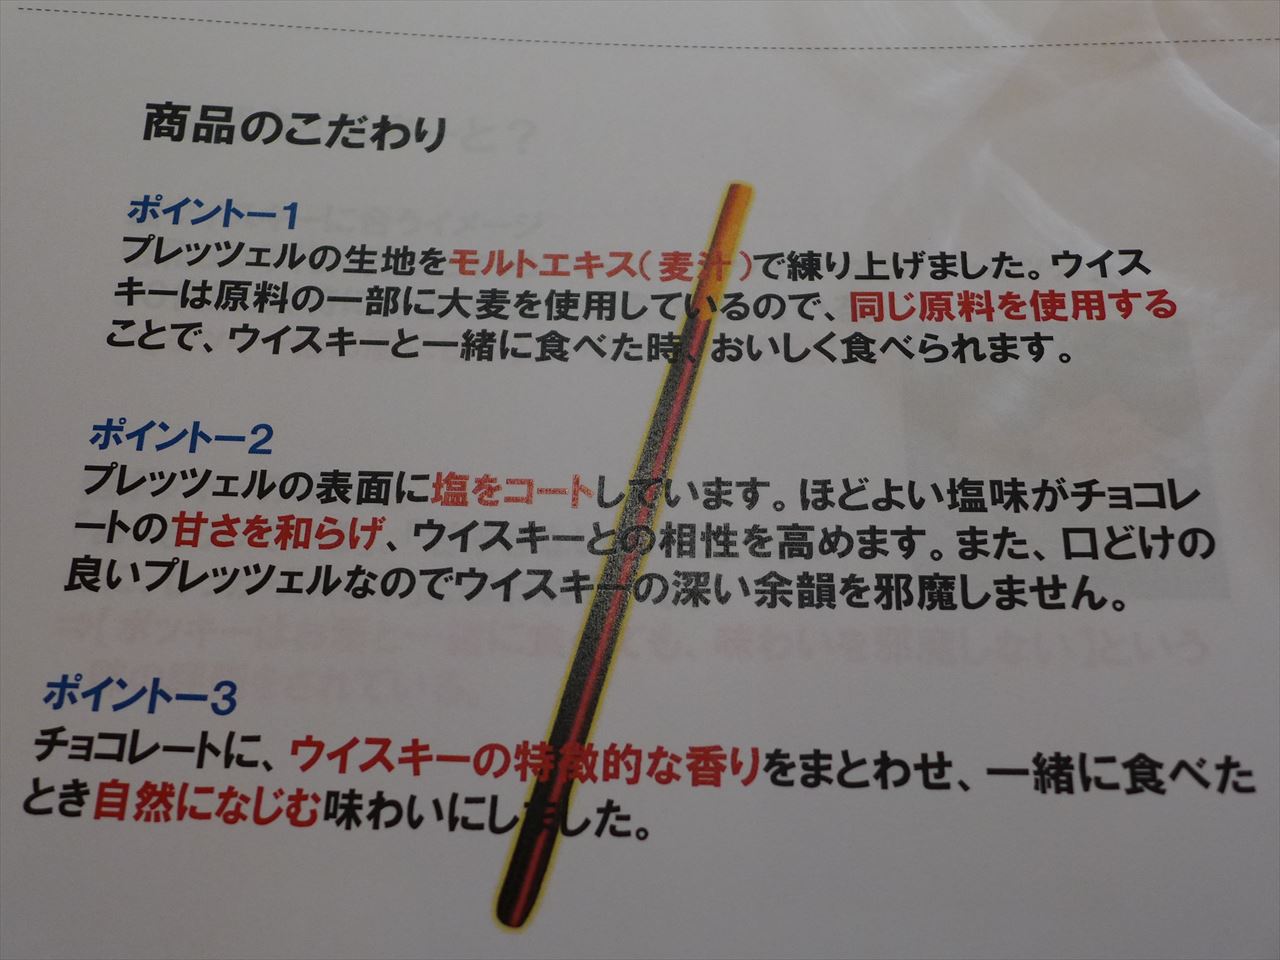 商品のこだわり
ポイントー1
プレッツェルの生地をモルトエキス(麦汁)で練り上げました。ウイス
キーは原料の一部に大麦を使用しているので、同じ原料を使用する
ことで、ウイスキーと一緒に食べた時、おいしく食べられます。
ポイントー2
プレッツェルの表面に塩をコートしています。ほどよい塩味がチョコレ
ートの甘さを和らげ、ウイスキーとの相性を高めます。また、口どけの
良いプレッツェルなのでウイスキーの深い余韻を邪魔しません。
ポイントー3
チョコレートに、ウイスキーの特徴的な香りをまとわせ、一緒に食べた
とき自然になじむ味わいにしました。